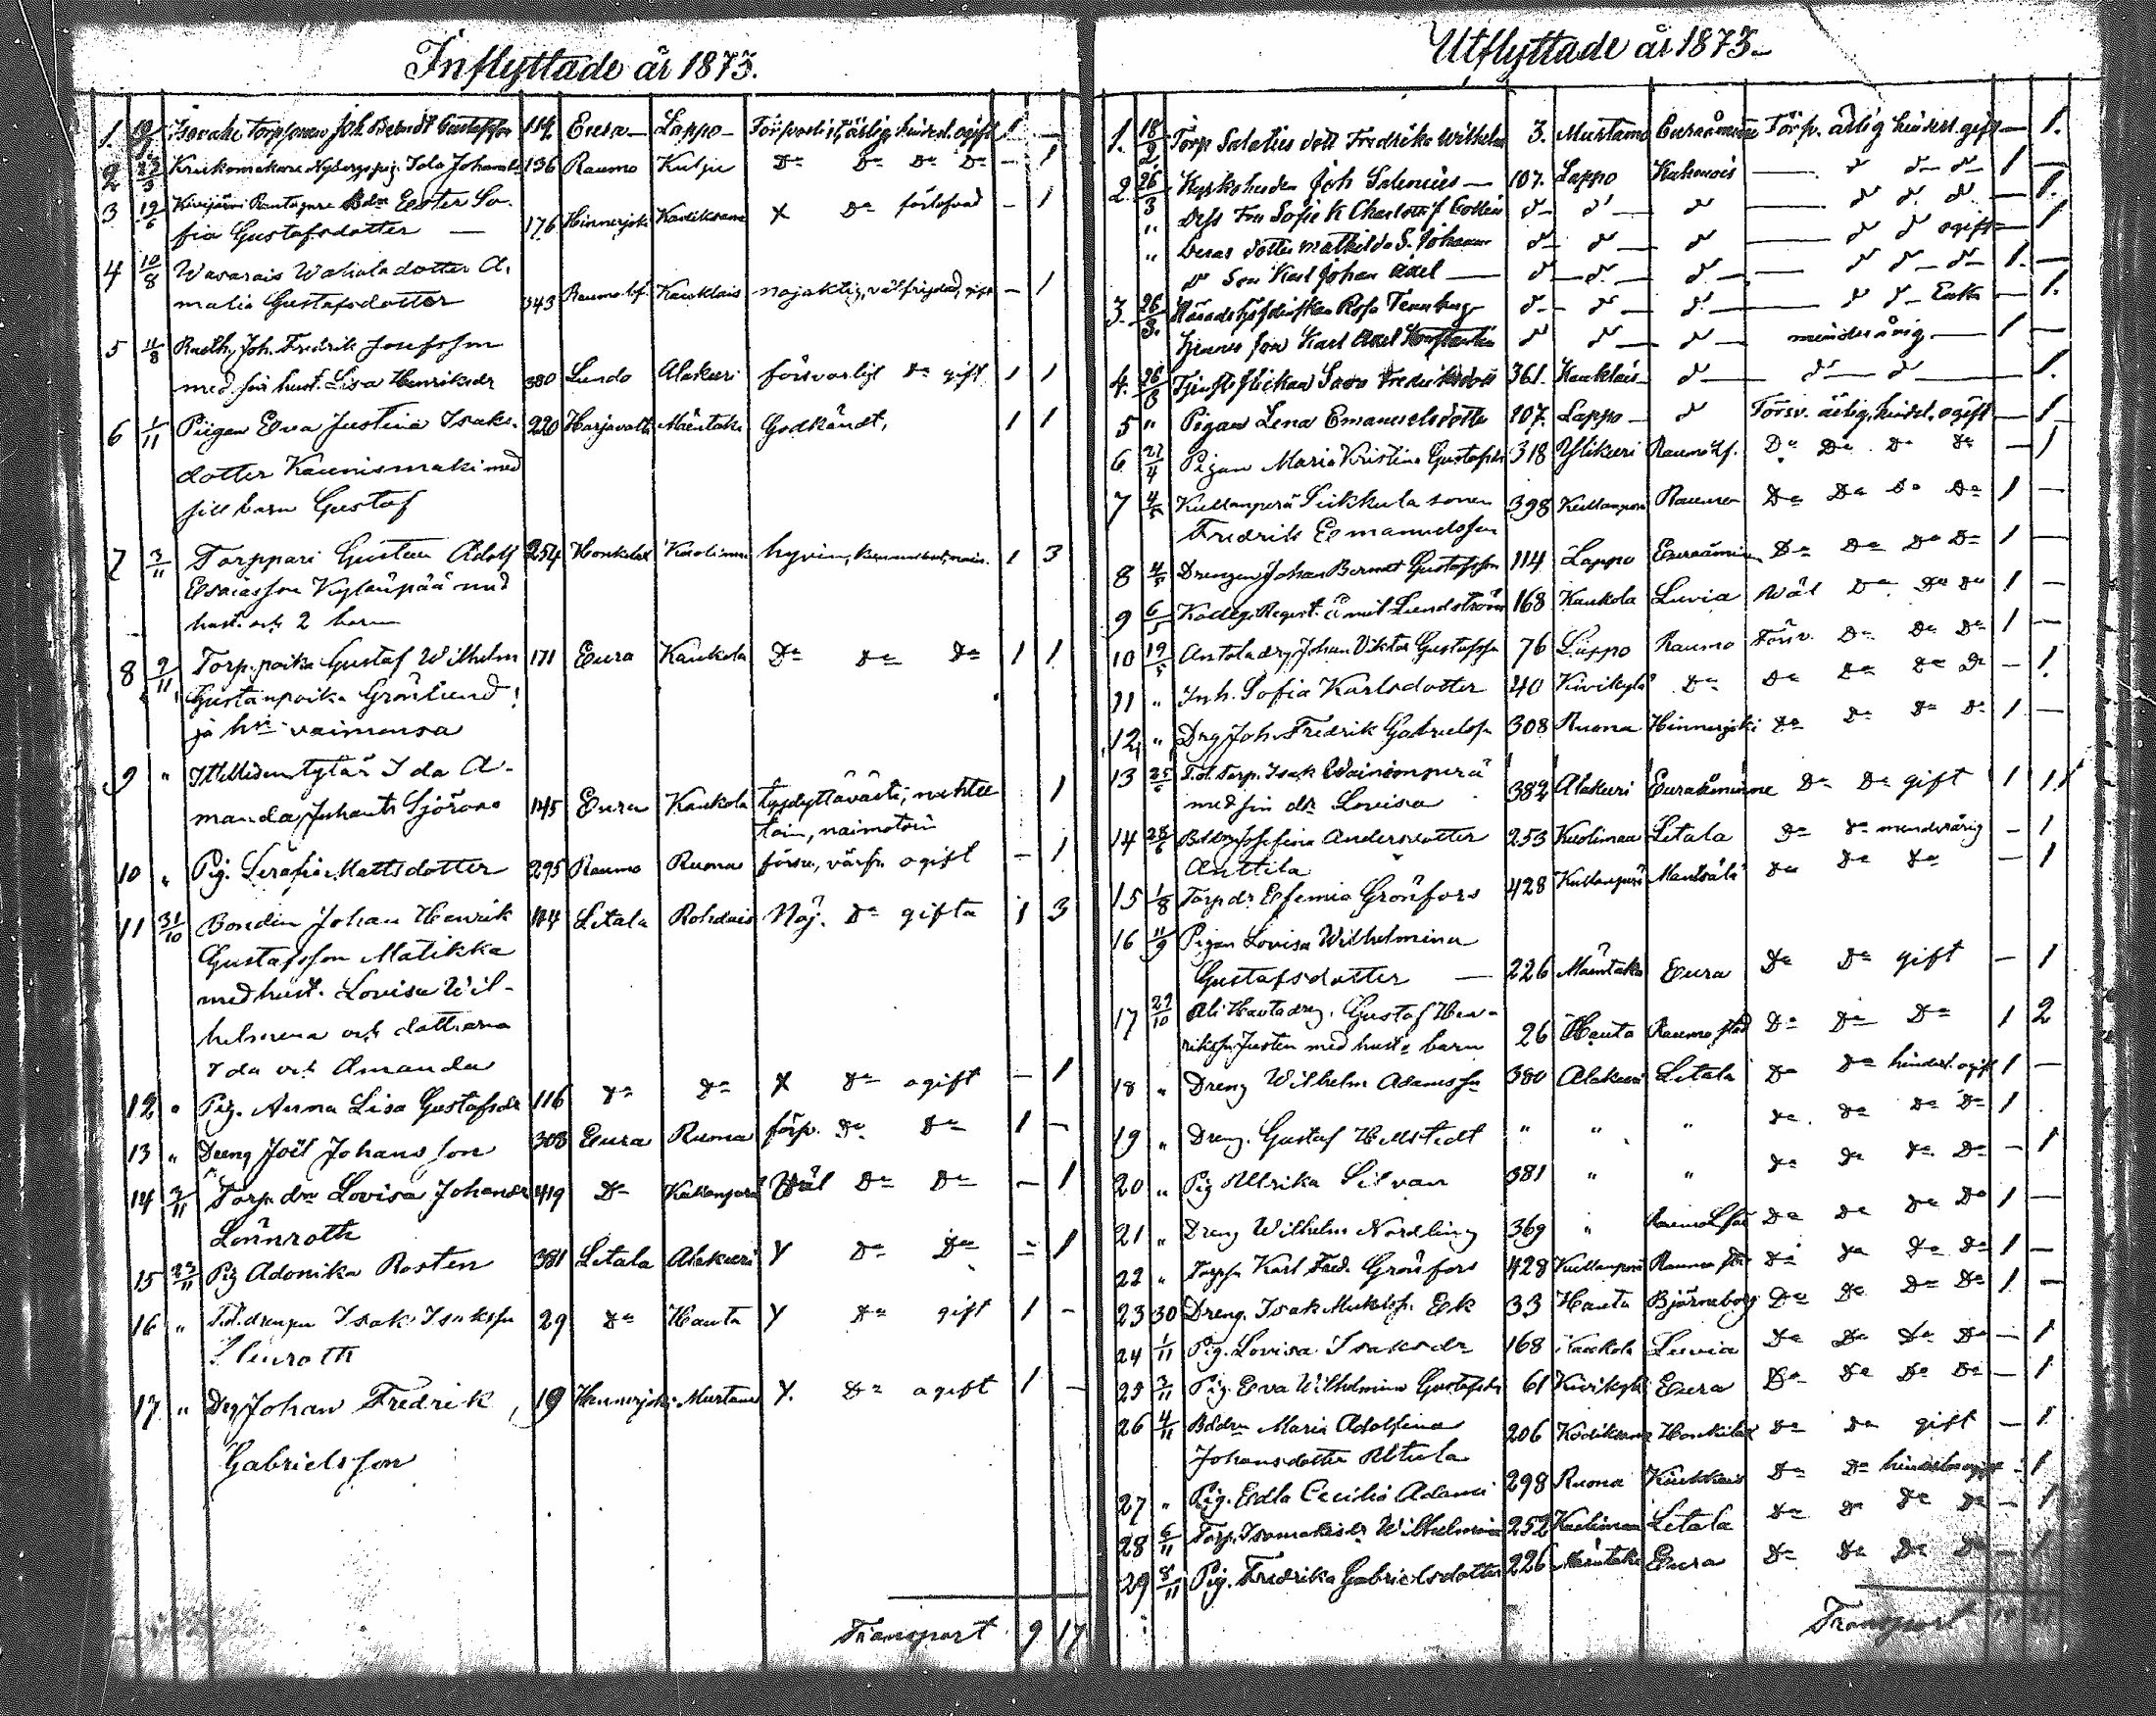 Inflyttade år 1873.
1. 19/2 Isovahe torpsonen Joh Berndt Gustafsson 114 Eura Lappo Förswarligt, ärlig, hindersl. ogift 1 —
2 23/3 Krukomakare Nybergs pig. Ida Johansdr 136 Raumo Kulju Do Do Do Do — 1
3 19/6 Kivijärvi Rantagare Bdr Ester So-
fia Gustafsdotter — 176 Hinnerjoki Kaukola X Do förlofvad — 1
4 10/8 Wasarais Wahala dotter A-
malia Gustafsdotter 343 Raumo lf. Kauklais nöjaktig, välfrejdad, gift — 1
5 11/8 Joh. Fredrik Josefsson
med sin hust. Lisa Henriksdr 380 Lundo Alakuri försvarligt Do gift 1 1
6 1/11 Pigan Eva Justina Isaks-
dotter Kaunismaki med 220 Harjavalta Mäntaka Godkändt, 1 1
sitt barn Gustaf
7 3/11 Torppari Gustaa Adolf 254 Honkilax Kuolimaa hyvin, 1 3
Esaiasson Kylänpää med
hust. och 2 barn
8 2/11 Torp. poika Gustaf Wilhelm 171 Eura Kaukola Do Do Do 1 1
Gustanpoika Grönlund
ja hän vaimonsa
9 " Itellisen tytär Ida A-
manda Juhant. Sjöroos 145 Eura Kaukola tyydyttäväisti, nuhtee 1
toin, naimatoin
10 " Pig. Serafia Mattsdotter 295 Raumo Ruona försv., värfr. ogift — 1
11 31/10 Bonden Johan Henrik 104 Letala Rohdais Nöj. Do gifta 1 3
Gustafsson Matikka
med hust. Lovisa Wil-
helmina och döttrarna
Ida och Amanda
12 " Pig. Anna Lisa Gustafsdr 116 Do Do X Do ogift — 1
13 " Dreng Joël Johansson 308 Eura Ruona försv. Do Do 1 —
14 2/11 Torp. dr Lovisa Johansdr 419 Do Kullanperä Wäl Do Do — 1
Lönnroth
15 23/11 Pig Adonika Rosten 381 Letala Alakuri Y Do Do — 1
16 " drengen Isak Isaksson 29 Do Hauta Y Do gift 1 —
17 " Drg Johan Fredrik 19 Hinnerjoki Murtamo Y. Do ogift 1 —
Gabrielsson
Transport 9 17
Utflyttade år 1873
1. 18/2 Torp Salatius dott Fredrika Wilhelm 3. Murtamo Euraåminne Försv. ärlig hindersl. gift — 1.
2 26/3 Kyrkoherden Joh Salenius — 107. Lappo Kakmois — d d d 1 —
" Dess Fru Sofie K Charlotte f. Collin d d d — d d d — 1.
" Deras dotter Mathilda S. Johanna d d d — d d ogift — 1
d Son Karl Johan Axel — d d d — d d d 1. —
3. 26/3. Häradshöfdingskan Rosa Tennberg d d d — d d Enka — 1.
hennes son Karl Axel Konstantin d d d minderårig. 1 —
4. 26/3 Tjenstflickan Sara Fredriksdott 361. Kauklais d d d — 1.
5 " Pigan Lena Emanuelsdotter 107. Lappo d Försv. ärlig, hindsl. ogift — 1
6 27/4 Pigan Maria Kristina Gustafsdr 318 Ylikuri Raumo lf. Do Do Do Do — 1
7 4/5 Kullanperä Pukkula sonen 398 Kullanperä Raumo Do Do Do Do 1 —
Fredrik Emanuelsson
8 4/5 Drengen Johan Bernt Gustafsson 114 Lappo Euraåminne Do Do Do Do 1 —
9 6/5 Kolleg. Regist. Emil Lundström 168 Kaukola Luvia Wäl Do Do Do 1 —
10 19/5 Antola drg Johan Viktor Gustafsson 76 Lappo Raumo Försv. Do Do Do 1 —
11 " Inh. Sofia Karlsdotter 40 Kivikylä Do Do Do Do Do — 1.
12 " Drg Joh. Fredrik Gabrielsson 308 Ruona Hinnerjoki Do Do Do Do 1 —
13 25/6 Torp. Isak Wainionperä
med sin dr Lovisa 382 Alakuri Euraåminne Do Do gift 1 1
14 28/6 Josefina Andersdotter 253 Kuolimaa Letala Do Do minderårig — 1
Anttila
15 1/8 Torp dr Efemia Grönfors 428 Kullanperä Mäntsälä Do Do Do — 1
16 11/9 Pigan Lovisa Wilhelmina
Gustafsdotter — 226 Mäntaka Eura Do Do gift — 1
17 29/10 Ali Hauta drg. Gustaf Hen-
rikssn Justen med hust o barn 26 Hauta Raumo stad Do Do Do 1 2
18 " Dreng Wilhelm Adamssn 380 Alakuri Letala Do Do hindersl. ogift 1 —
19 " Dreng. Gustaf Hellstedt " " " Do Do Do Do 1
20 " Pig Ulrika Silvan 381 " " Do Do Do Do — 1
21 " Dreng Wilhelm Nordling 369 " Raumo Do Do Do Do 1 —
22 " Torpsn Karl Fred. Grönfors 428 Kullanperä Raumo Do Do Do Do 1 —
23 30 Dreng. Isak Ek 33 Hauta Björneborg Do Do Do Do 1 —
24 1/11 Pig. Lovisa Isaksdr 168 Kaukola Luvia Do Do Do Do — 1
25 2/11 Pig. Eva Wilhelmina Gustafsdr 61 Kivikylä Eura Do Do Do Do — 1
26 4/11 Bddr Maria Adolfina 206 Honkilax Do Do gift — 1
Johansdotter
27 " Pig. Edla Cecilia Adami 298 Ruona Kiukkais Do Do hindersl. ogift — 1
28 6/11 Torp. Isomäki dr Wilhelmina 252 Kuolimaa Letala Do Do Do Do — 1
29 8/11 Pig. Fredrika Gabrielsdotter 226 Mäntaka Eura Do Do Do Do — 1
Transport